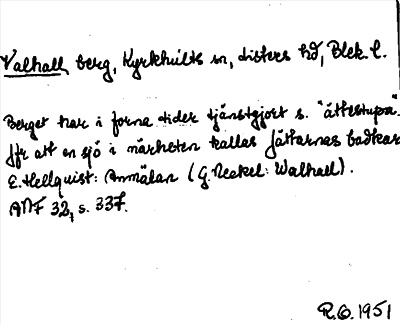 Valhall berg, Kyrkhults sn, Listers hd, Blek. l.
Berget har i forna tider tjänstgjort s. "ättestupa".
Jfr att en sjö i närheten kallas Jättarnas badkar
E. Hellquist: Anmälan (G. Neckel: Walhall).
ANF 32, s. 337.
R.O. 1951